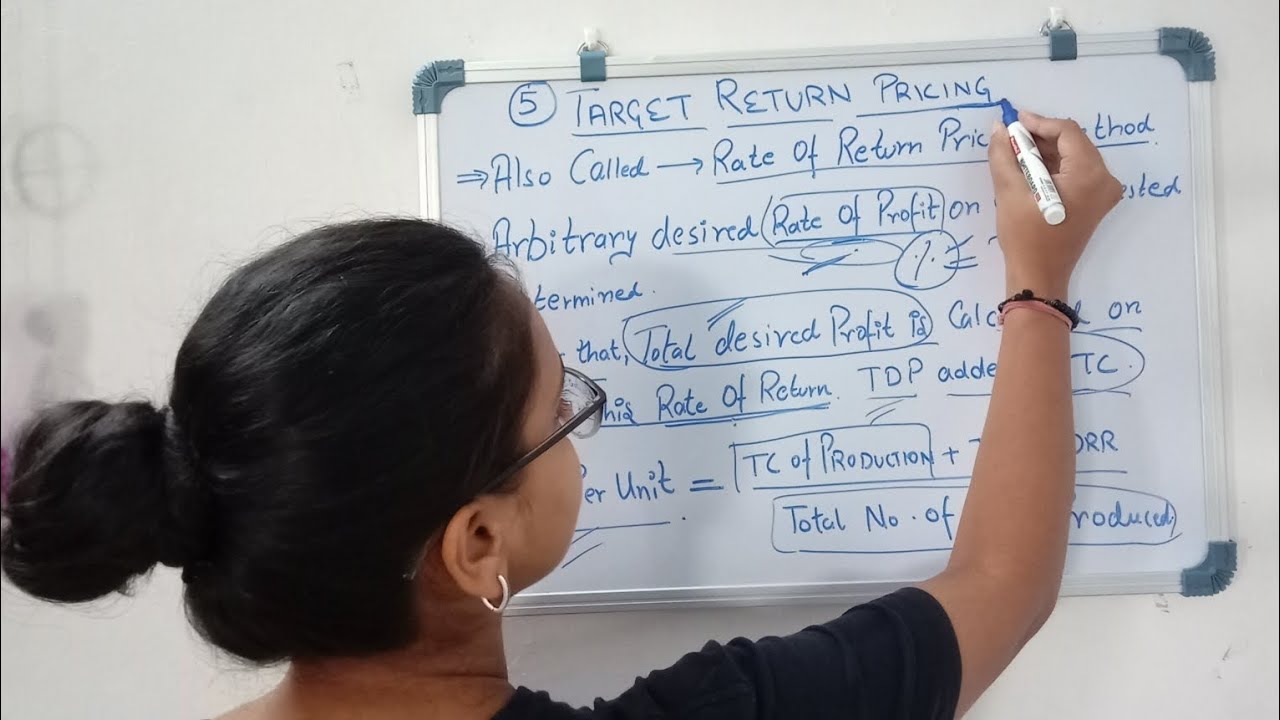 5 TARGET RETURN PRICING
⇒ Also Called → Rate Of Return Pric thod.
Arbitrary desired Rate Of Profit on ested
% =
termined.
that, Total desired Profit is Calc on
his Rate Of Return. TDP adde TC.
er Unit = TC of PRODUCTION + T DRR
Total No. of roduced